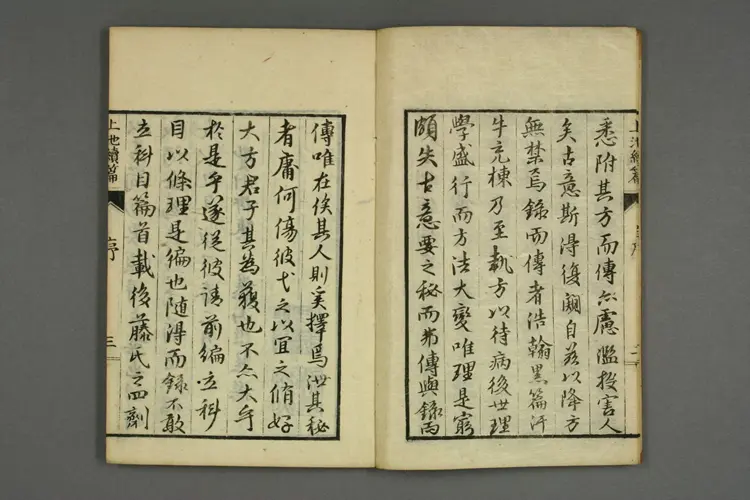 悉附其方而傳亦慮濫投害人
矣古意斯得復闕自茲以降方
無禁焉錄而傳者浩翰黑篇汗
牛充棟乃至執方以待病後世理
學盛行而方法大變唯理是窮
頗失古意要之秘而弗傳與錄而
上池續篇
序
二
傳唯在俟其人則奚擇焉泄其秘
者庸何傷彼弋之以宜之脩好
大方君子其為蔽也不亦大乎
於是乎遂從彼請前編立科
目以條理是徧也随得而錄不敢
立科目篇首載後藤氏之四劑
上池續篇
序
三